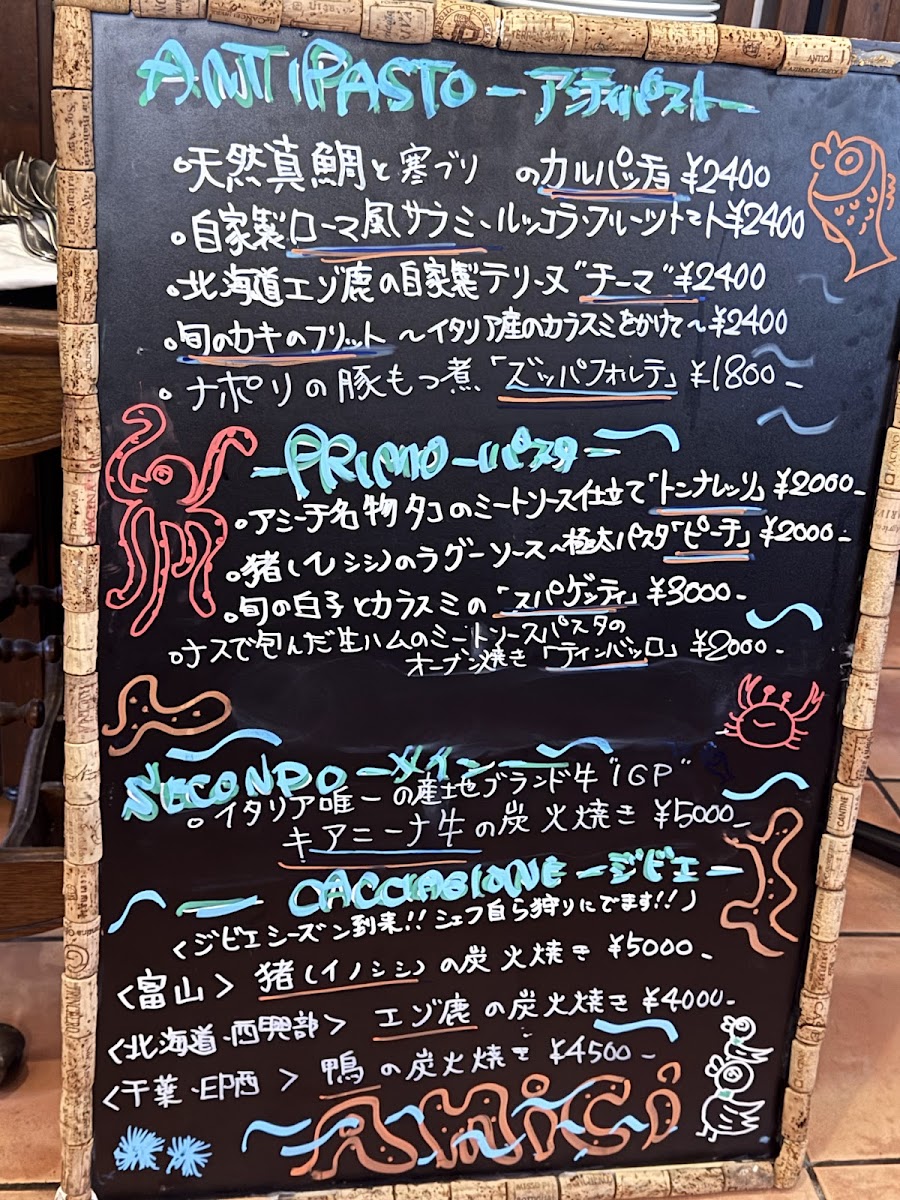 ANTIPASTO ー アンティパスト ー
・天然真鯛と寒ブリ のカルパッチョ ¥2400
・自家製ローマ風サラミ・ルッコラ・フルーツトマト ¥2400
・北海道エゾ鹿の自家製テリーヌ "チーマ" ¥2400
・旬のカキのフリット 〜イタリア産のカラスミをかけて〜 ¥2400
・ナポリの豚もつ煮「ズッパフォルテ」 ¥1800-
ー PRIMO ー パスタ ー
・アミーチ名物タコのミートソース仕立て「トンナレッリ」 ¥2000-
・猪(イノシシ)のラグーソース〜極太パスタ「ピーチ」 ¥2000-
・旬の白子とカラスミの「スパゲッティ」 ¥3000-
・ナスで包んだ生ハムのミートソースパスタの
オーブン焼き「ティンバッロ」 ¥2000-
SECONDO ー メイン ー
・イタリア唯一の産地ブランド牛 "IGP"
キアニーナ牛の炭火焼き ¥5000-
ー CACCIAGIONE ー ジビエ ー
(ジビエシーズン到来!! シェフ自ら狩りにでます!!)
<富山> 猪(イノシシ)の炭火焼き ¥5000-
<北海道・西興部> エゾ鹿の炭火焼き ¥4000-
<千葉・印西> 鴨の炭火焼き ¥4500-
Amici